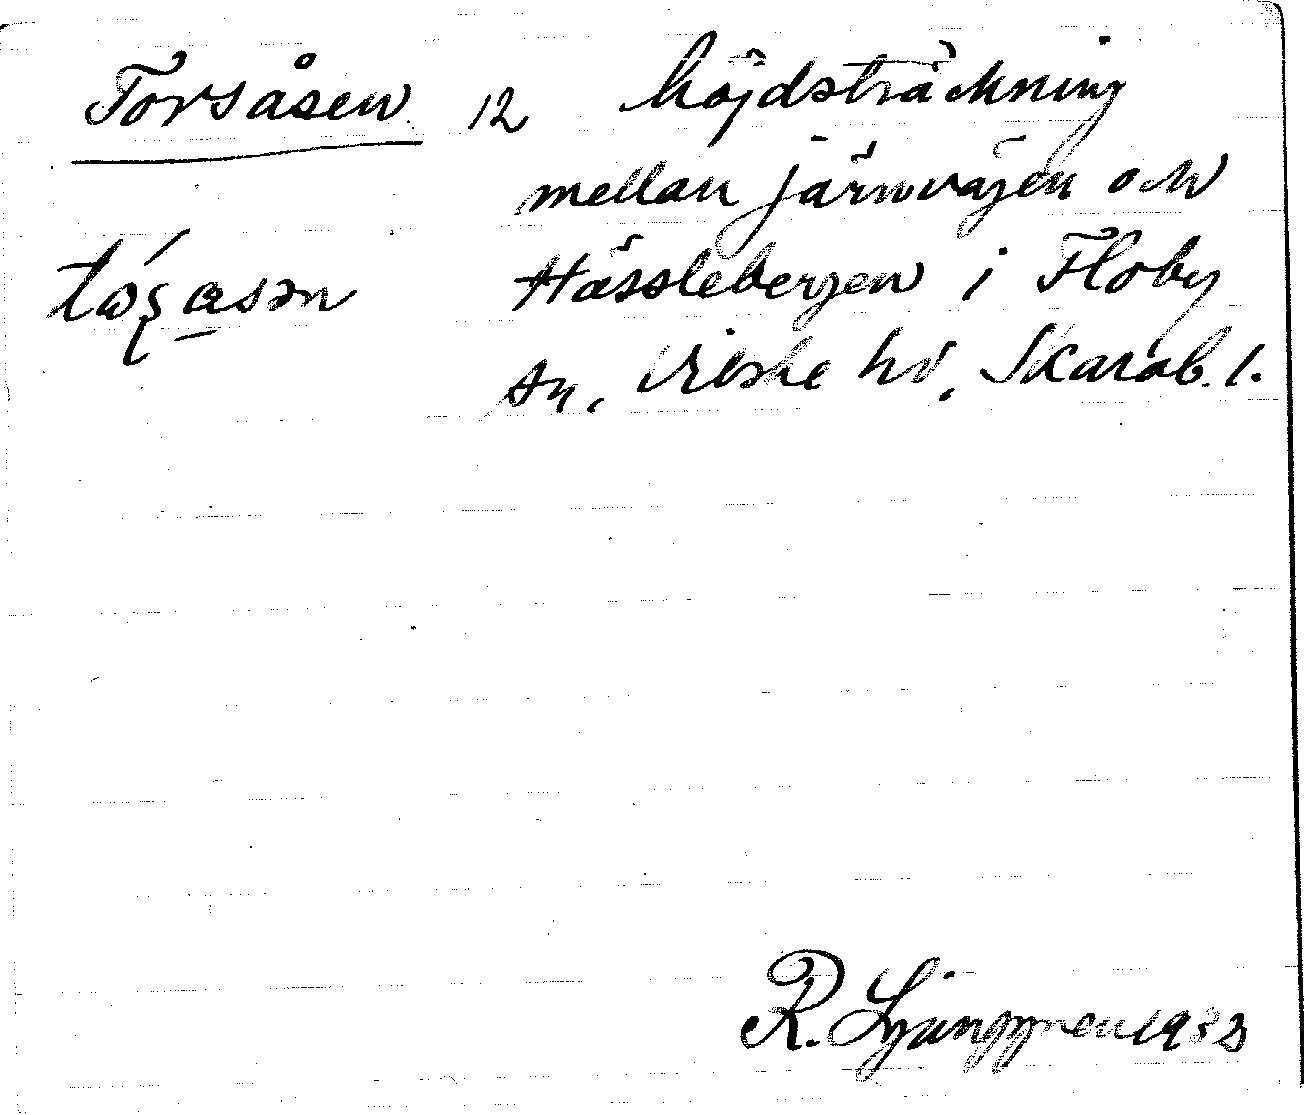 Torsåsen 12 höjdsträckning
mellan järnvägen och
Hässlebergen i Floby
sn, Vilske hd, Skarab. l.
R. Ljunggren